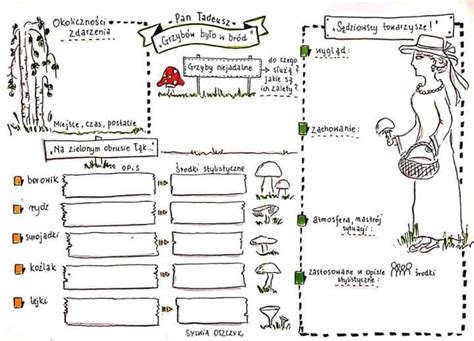 Okoliczności
zdarzenia
Miejsce, czas, postacie
Pan Tadeusz
„Grzybów było w bród”
Grzyby niejadalne
do czego
służą?
jakie są
ich zalety?
„Na zielonym obrusie łąk...”
opis
środki stylistyczne
borowik
rydz
surojadki
koźlak
lejki
SYLWIA OSZCZYK
„Sędziowscy towarzysze!”
wygląd:
zachowanie:
atmosfera, nastrój
sytuacji:
zastosowane w opisie środki
stylistyczne: